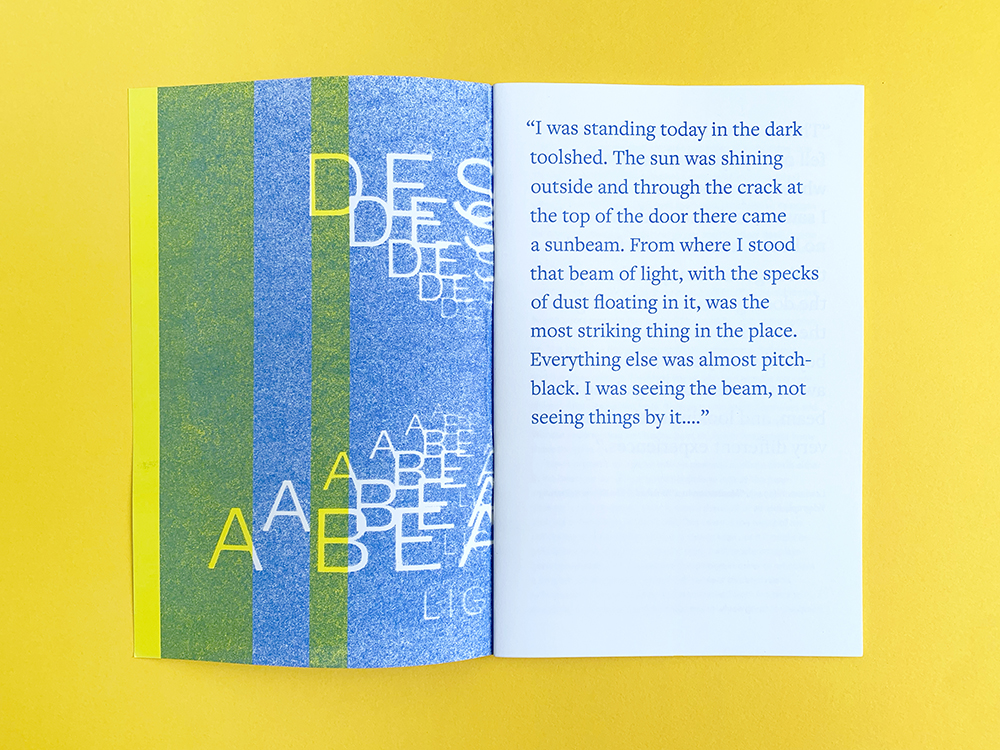 DES
DES
DES
DES
DES
ABEA
ABEA
ABEA
ABEA
ABEA
LIG
“I was standing today in the dark
toolshed. The sun was shining
outside and through the crack at
the top of the door there came
a sunbeam. From where I stood
that beam of light, with the specks
of dust floating in it, was the
most striking thing in the place.
Everything else was almost pitch-
black. I was seeing the beam, not
seeing things by it....”